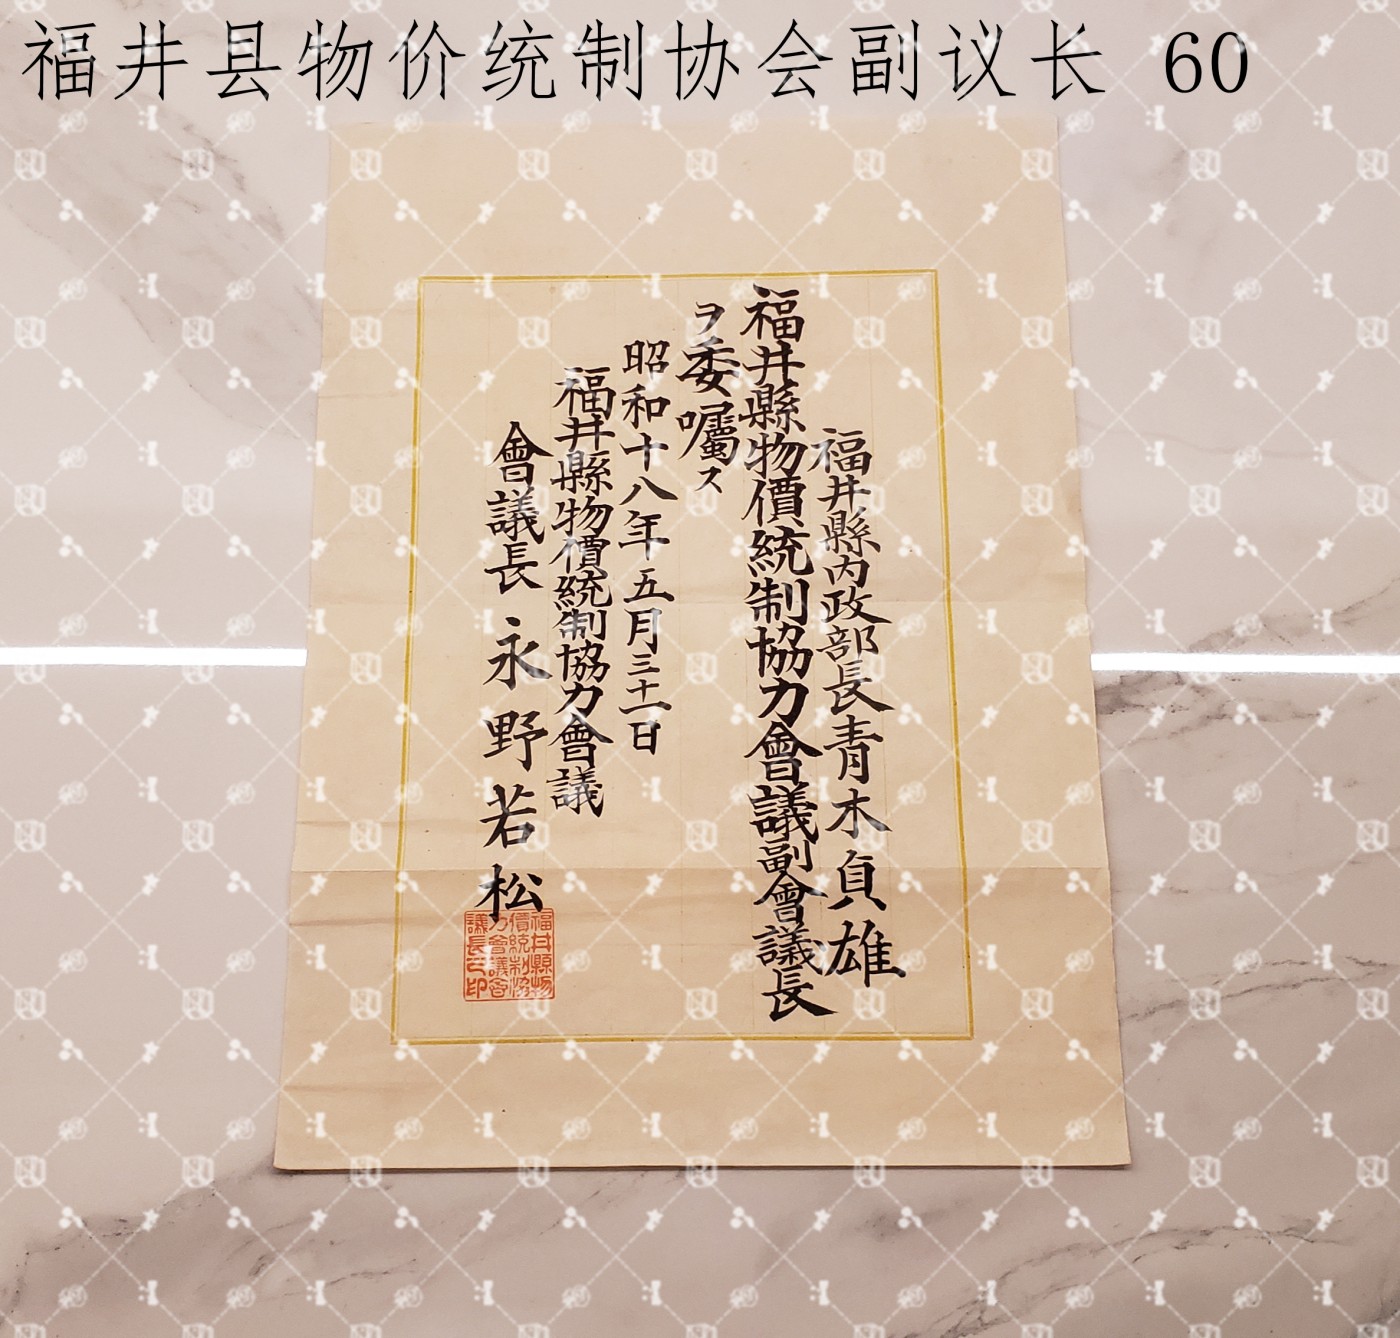 福井县物价统制协会副议长 60
福井縣内政部長青木貞雄
福井縣物價統制協力會議副會議長
ヲ委囑ス
昭和十八年五月三十一日
福井縣物價統制協力會議
會議長 永野若松
福井縣物
價統制協
力會議會
議長之印